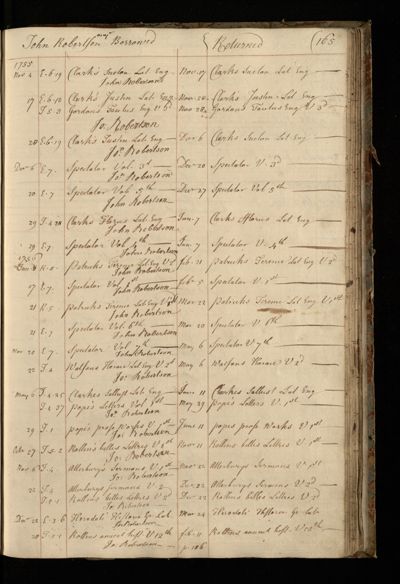 John Robertson Borrowed Returned 165
1755
Nov 4 E-6-19 Clarks Sueton Lat Eng Nov 17 Clarks Sueton Lat Eng
John Robertson
17 E-6-18 Clarks Justin Lat Eng Nov 28 Clarks Justin Lat Eng
Gordons Tacitus Nov 28 Gordons Tacitus Eng V 3d
Jo: Robertson
28 E-6-19 Clarks Sueton Lat Eng Decr 6 Clarks Sueton Lat Eng
Jo: Robertson
Decr 6 E-7 Spectator Vol. 3d Decr 20 Spectator V 3d
Jo: Robertson
20 E-7 Spectator Vol 5th Decr 27 Spectator Vol 5th
John Robertson
29 Clarks Florus Lat Eng Jan 7 Clarks Florus Lat Eng
John Robertson
29 E-7 Spectator Vol 4th Jan 7 Spectator V. 4th
John Robertson
1756
Patricks Terence Lat Eng Feb 11 Patricks Terence Lat Eng
John Robertson
17 E-7 Spectator Vol 1st Feb 5 Spectator V 1st
John Robertson
21 Patricks Terence Lat Eng V 1st Mar 22 Patricks Terence Lat Eng V 1st
John Robertson
21 E-7 Spectator Vol 6th Mar 20 Spectator V 6th
John Robertson
Mar 20 E-7 Spectator Vol 7th May 6 Spectator V 7th
John Robertson
22 Watsons Horace Lat Eng V 2d May 6 Watsons Horace V 2d
Jo: Robertson
May 6 Clarkes Sallust Lat Eng June 11 Clarkes Sallust Lat Eng
Popes Letters Vol 1st May 29 popes Letters V 1st
Jo: Robertson
29 popes prose Works V 1st June 11 popes prose Works V 1st
Jo: Robertson
Octr 27 Rollins belles Lettres V 1st Nov 11 Rollins belles Lettres V 1st
Jo: Robertson
Nov Atterburys Sermons V 1st Nov 22 Atterburys Sermons V 1st
Jo: Robertson
22 Atterburys sermons V 2 Dec 22 Atterburys Sermons V 2d
Rollins belles Lettres V 2 Dec 22 Rollins belles Lettres V 2
Jo: Robertson
Decr 22 Herodoti Lat Mar 24 Herodoti Lat
Jo: Robertson
Rollins ancient hist. V 12th Feb 11 Rollins ancient hist. V 12th
Jo: Robertson p. 186